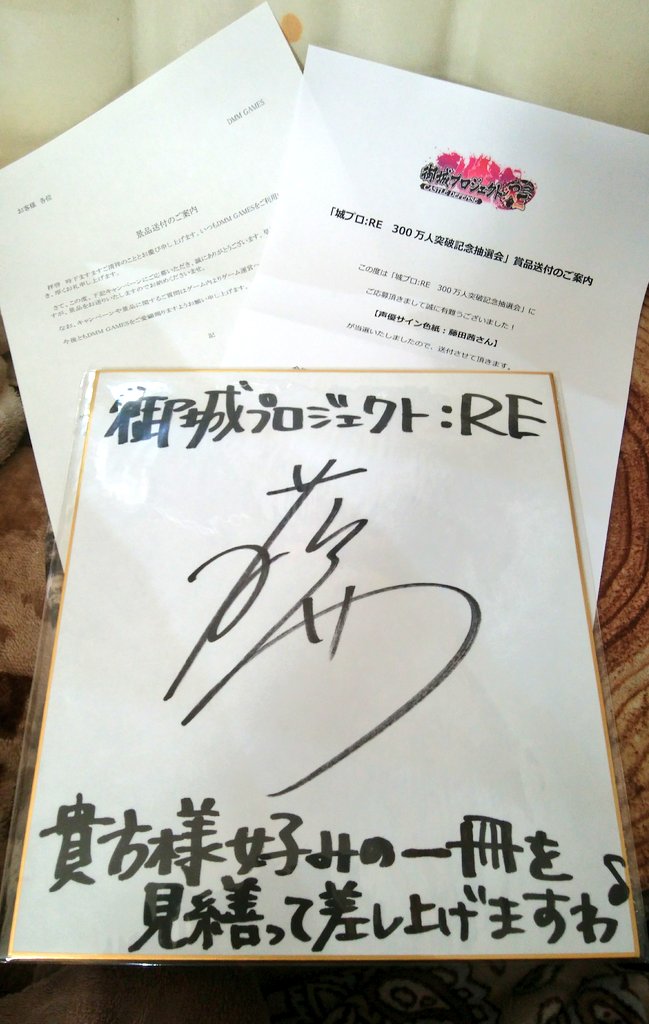 DMM GAMES
お客様 各位
景品送付のご案内
拝啓 時下ますますご清祥のこととお慶び申し上げます。いつもDMM GAMESをご利用い
き、厚くお礼申し上げます。
さて、この度、下記キャンペーンにご応募いただき、誠にありがとうございます。
すが、景品をお送りいたしますのでお納めくださいませ。
なお、キャンペーンや景品に関するご質問はゲーム内よりゲーム運営
今後ともDMM GAMESをご愛顧賜りますようお願い申し上げます。
記
御城プロジェクト:RE
CASTLE DEFENSE
「城プロ:RE 300万人突破記念抽選会」賞品送付のご案内
この度は「城プロ:RE 300万人突破記念抽選会」に
ご応募頂きまして誠に有難うございました！
【声優サイン色紙：藤田茜さん】
が当選いたしましたので、送付させて頂きます。
御城プロジェクト:RE
貴方様好みの一冊を
見繕って差し上げますわ♪